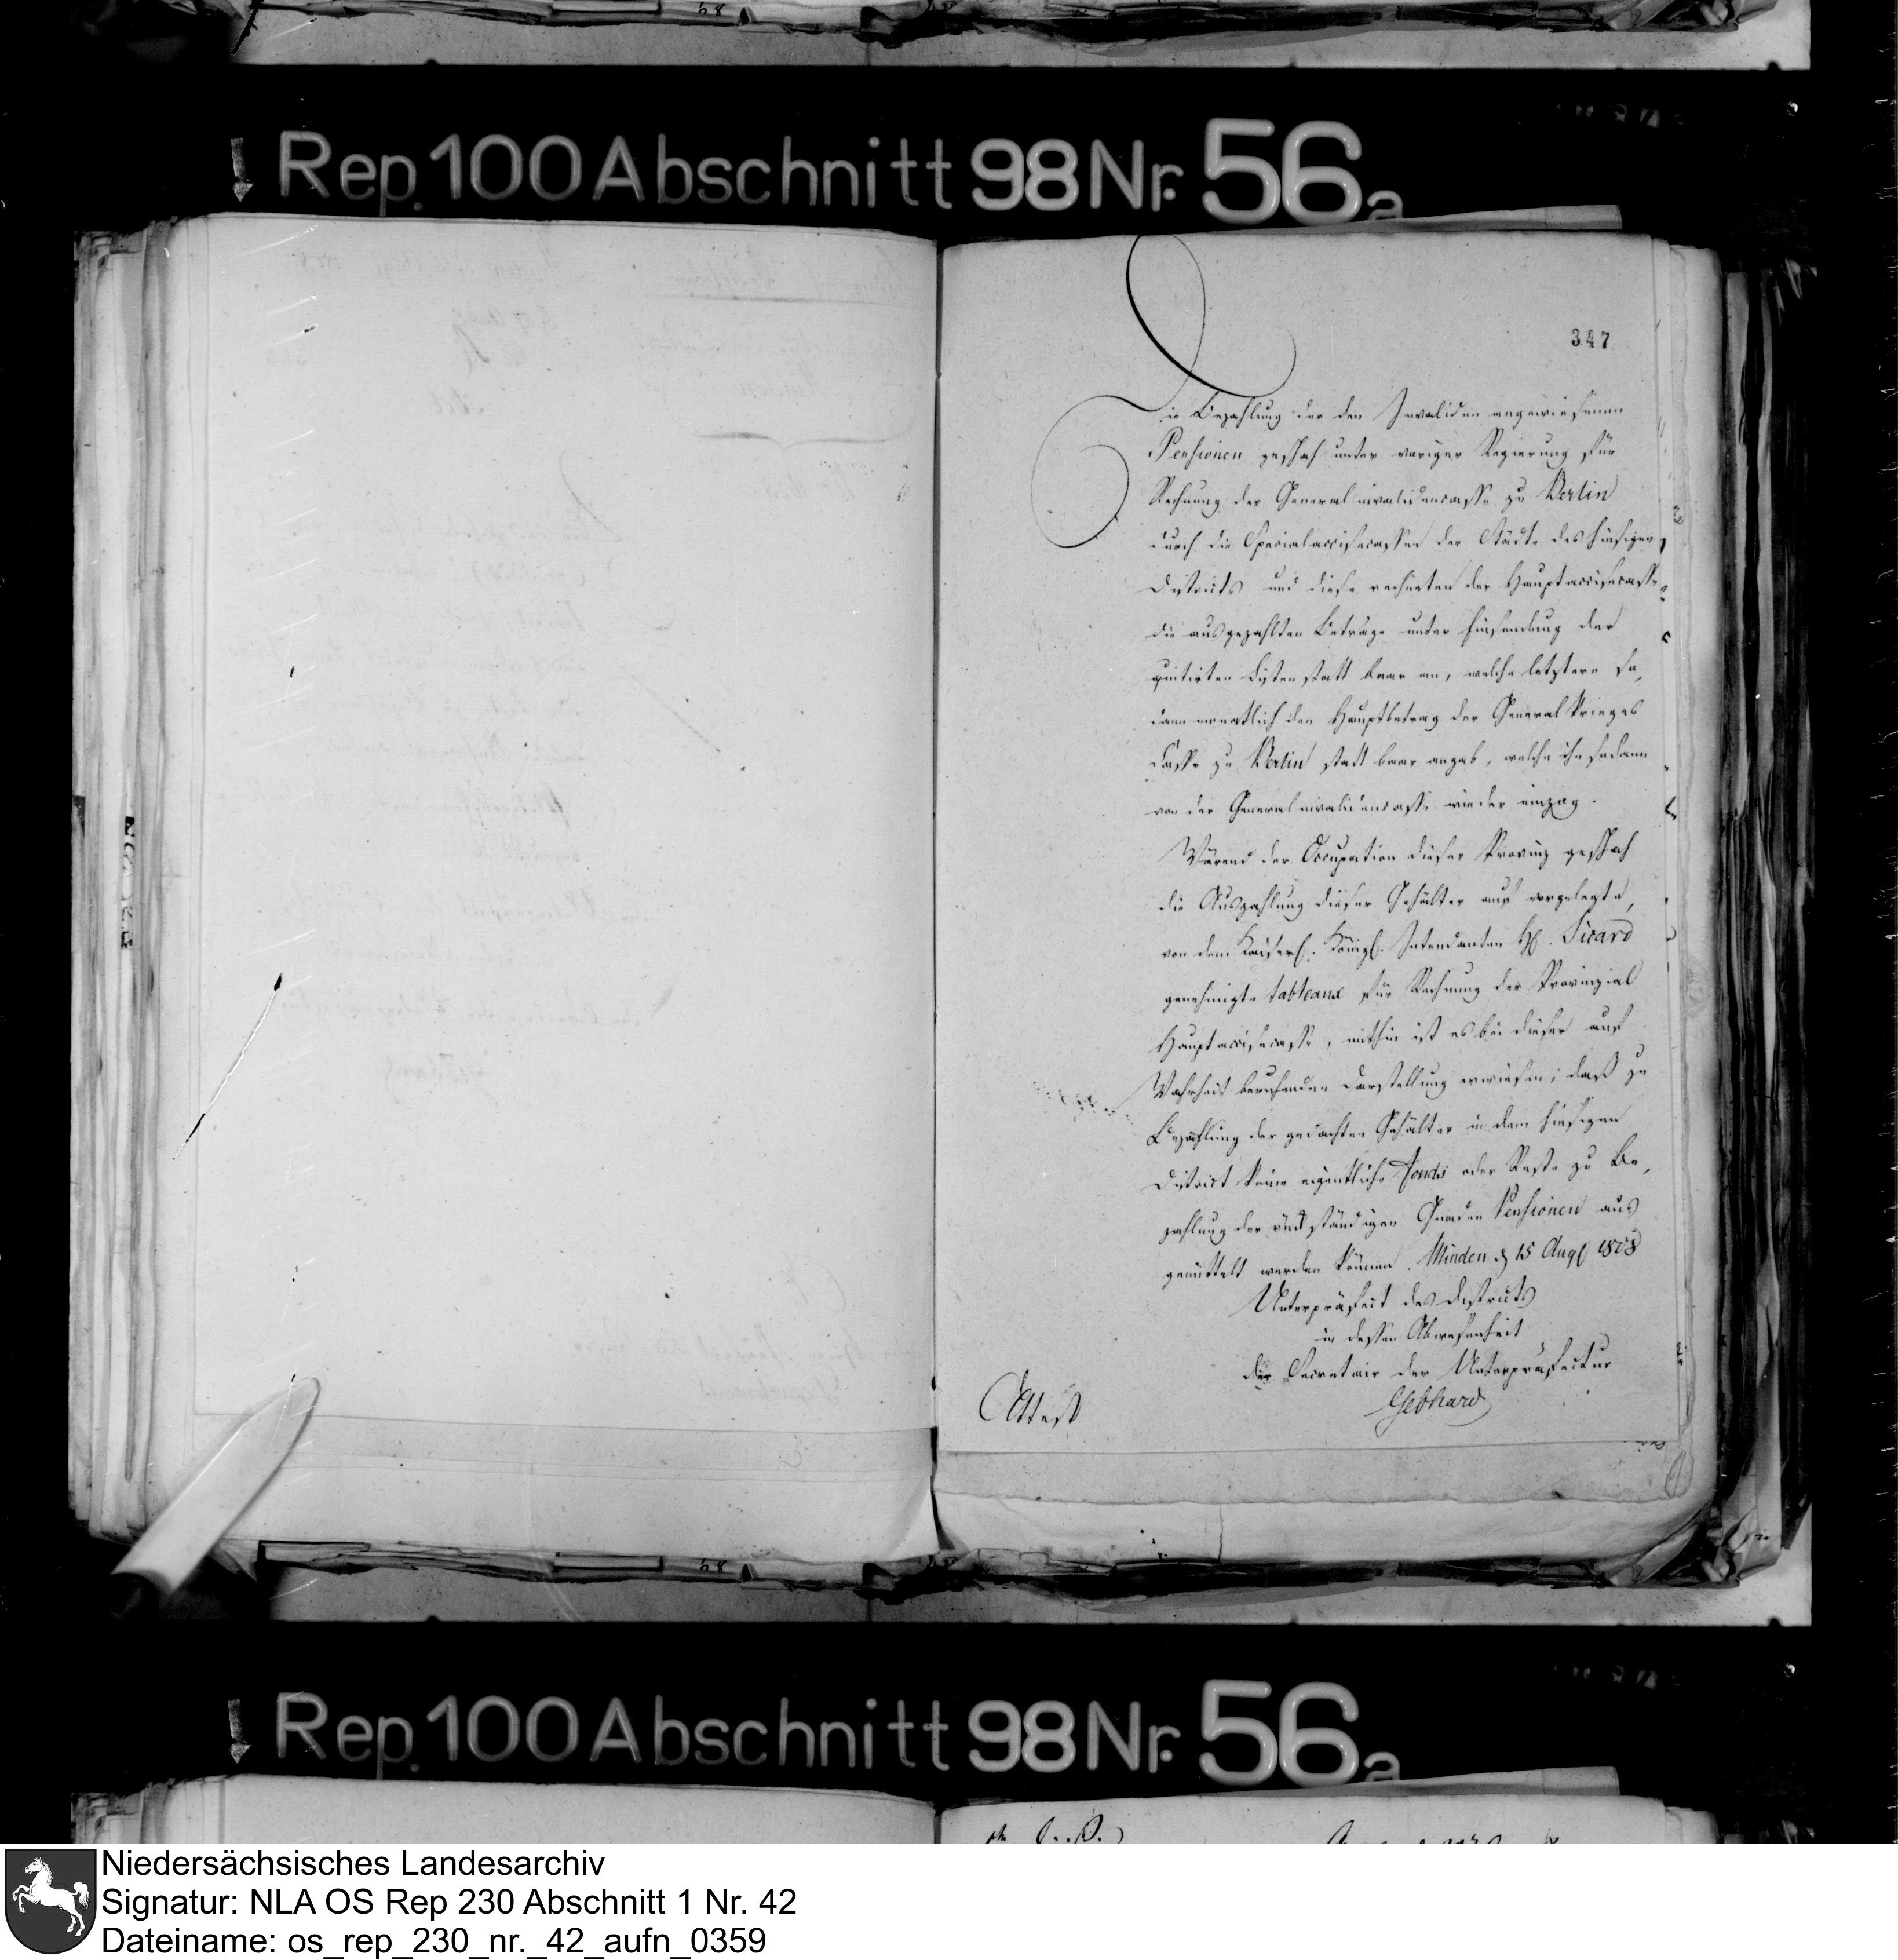 Rep. 100 Abschnitt 98 Nr. 56a
347
Die Bezahlung der den Invaliden angewiesenen
Pensionen geschah unter voriger Regierung für
Rechnung der Generalinvalidencasse zu Berlin
durch die Specialaccisecassen der Städte des hiesigen
Districts und diese rechneten der Hauptaccisecasse
die ausgezahlten Beträge unter Einsendung der
quitirten Listen statt baar an, welche letztere so,
dann monatlich den Hauptbetrag der Generalkrieges
Casse zu Berlin statt baar angab, welche ihn sodann
von der Generalinvalidencasse wieder einzog.
Wärend der Occupation dieser Provinz geschah
die Auszahlung dieser Gehälter auf vorgelegte,
von dem Kaiserl. Königl. Intendanten H. Sicard
genehmigte tableaux für Rechnung der Provinzial
Hauptaccisecasse, mithin ist es bei dieser auf
Wahrheit beruhenden Darstellung erwiesen; daß zu
Bezahlung der gedachten Gehälter in dem hiesigen
District keine eigentliche fonds oder Reste zu Be,
zahlung der rückständigen Gnaden Pensionen aus
gemittelt werden können. Minden d 15 Augt 1808
Unterpräfect des Districts
in dessen Abwesenheit
der Secretair der Unterpräfectur
Gebhard
Attest
Rep. 100 Abschnitt 98 Nr. 56a
Niedersächsisches Landesarchiv
Signatur: NLA OS Rep 230 Abschnitt 1 Nr. 42
Dateiname: os_rep_230_nr._42_aufn_0359